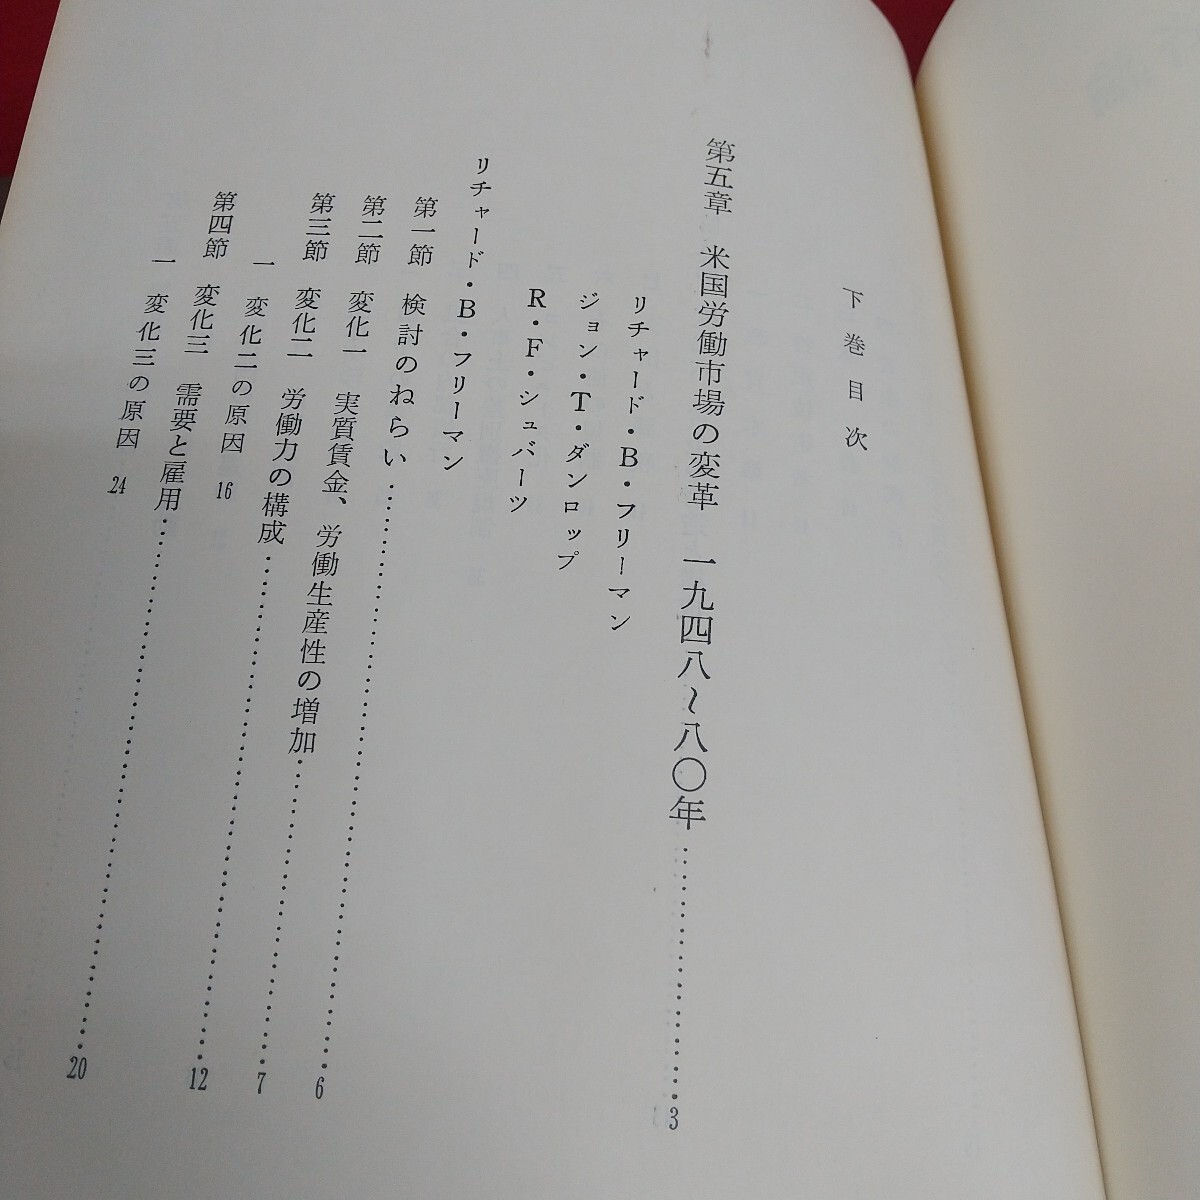 下巻目次
第五章　米国労働市場の変革　一九四八〜八〇年……3
リチャード・B・フリーマン
ジョン・T・ダンロップ
R・F・シュバーツ
リチャード・B・フリーマン
第一節　検討のねらい……6
第二節　変化一　実質賃金、労働生産性の増加……7
第三節　変化二　労働力の構成……12
一　変化二の原因　16
第四節　変化三　需要と雇用……20
一　変化三の原因　24